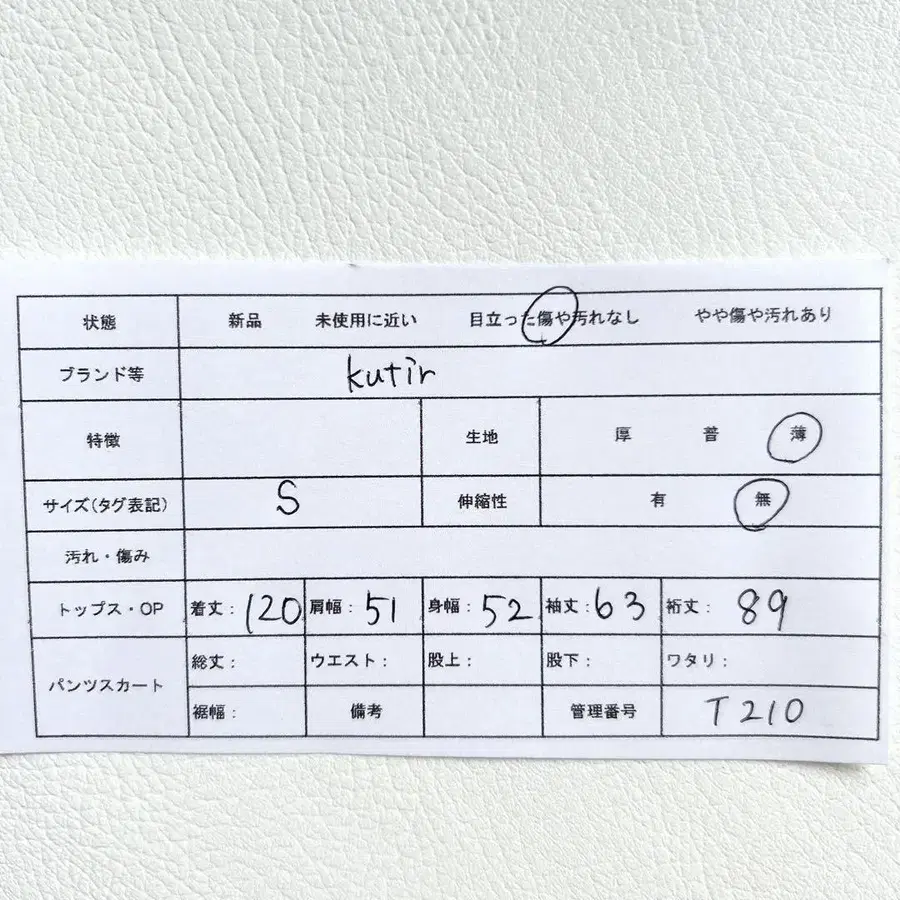 状態 新品 未使用に近い 目立った傷や汚れなし やや傷や汚れあり
ブランド等 kutir
特徴 生地 厚 普 薄
サイズ(タグ表記) S 伸縮性 有 無
汚れ・傷み
トップス・OP 着丈：120 肩幅：51 身幅：52 袖丈：63 裄丈：89
パンツスカート 総丈： ウエスト： 股上： 股下： ワタリ：
裾幅： 備考 管理番号 T210